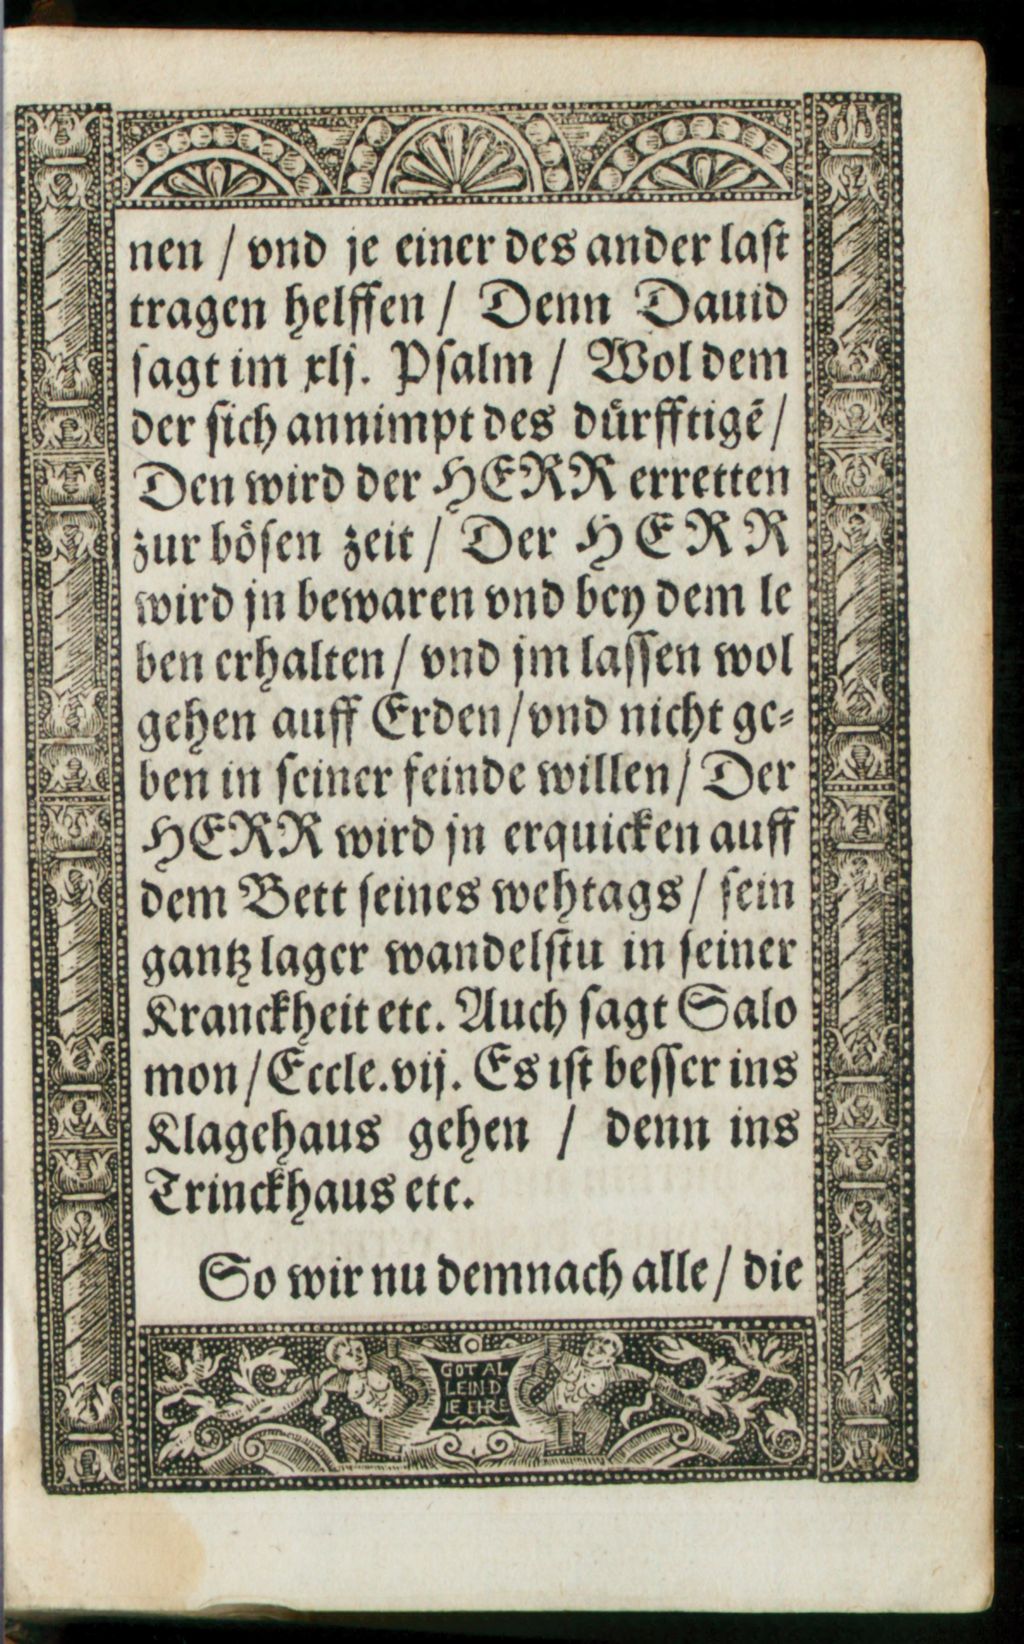 nen / vnd je einer des ander last
tragen helffen / Denn Dauid
sagt im xlj. Psalm / Wol dem
der sich annimpt des dürfftigẽ /
Den wird der HERR erretten
zur bösen zeit / Der HERR
wird jn bewaren vnd bey dem le
ben erhalten / vnd jm lassen wol
gehen auff Erden / vnd nicht ge⸗
ben in seiner feinde willen / Der
HERR wird jn erquicken auff
dem Bett seines wehtags / sein
gantz lager wandelstu in seiner
Kranckheit etc. Auch sagt Salo
mon / Eccle. vij. Es ist besser ins
Klagehaus gehen / denn ins
Trinckhaus etc.
So wir nu demnach alle / die
GOT AL
LEIN D
IE EHRE